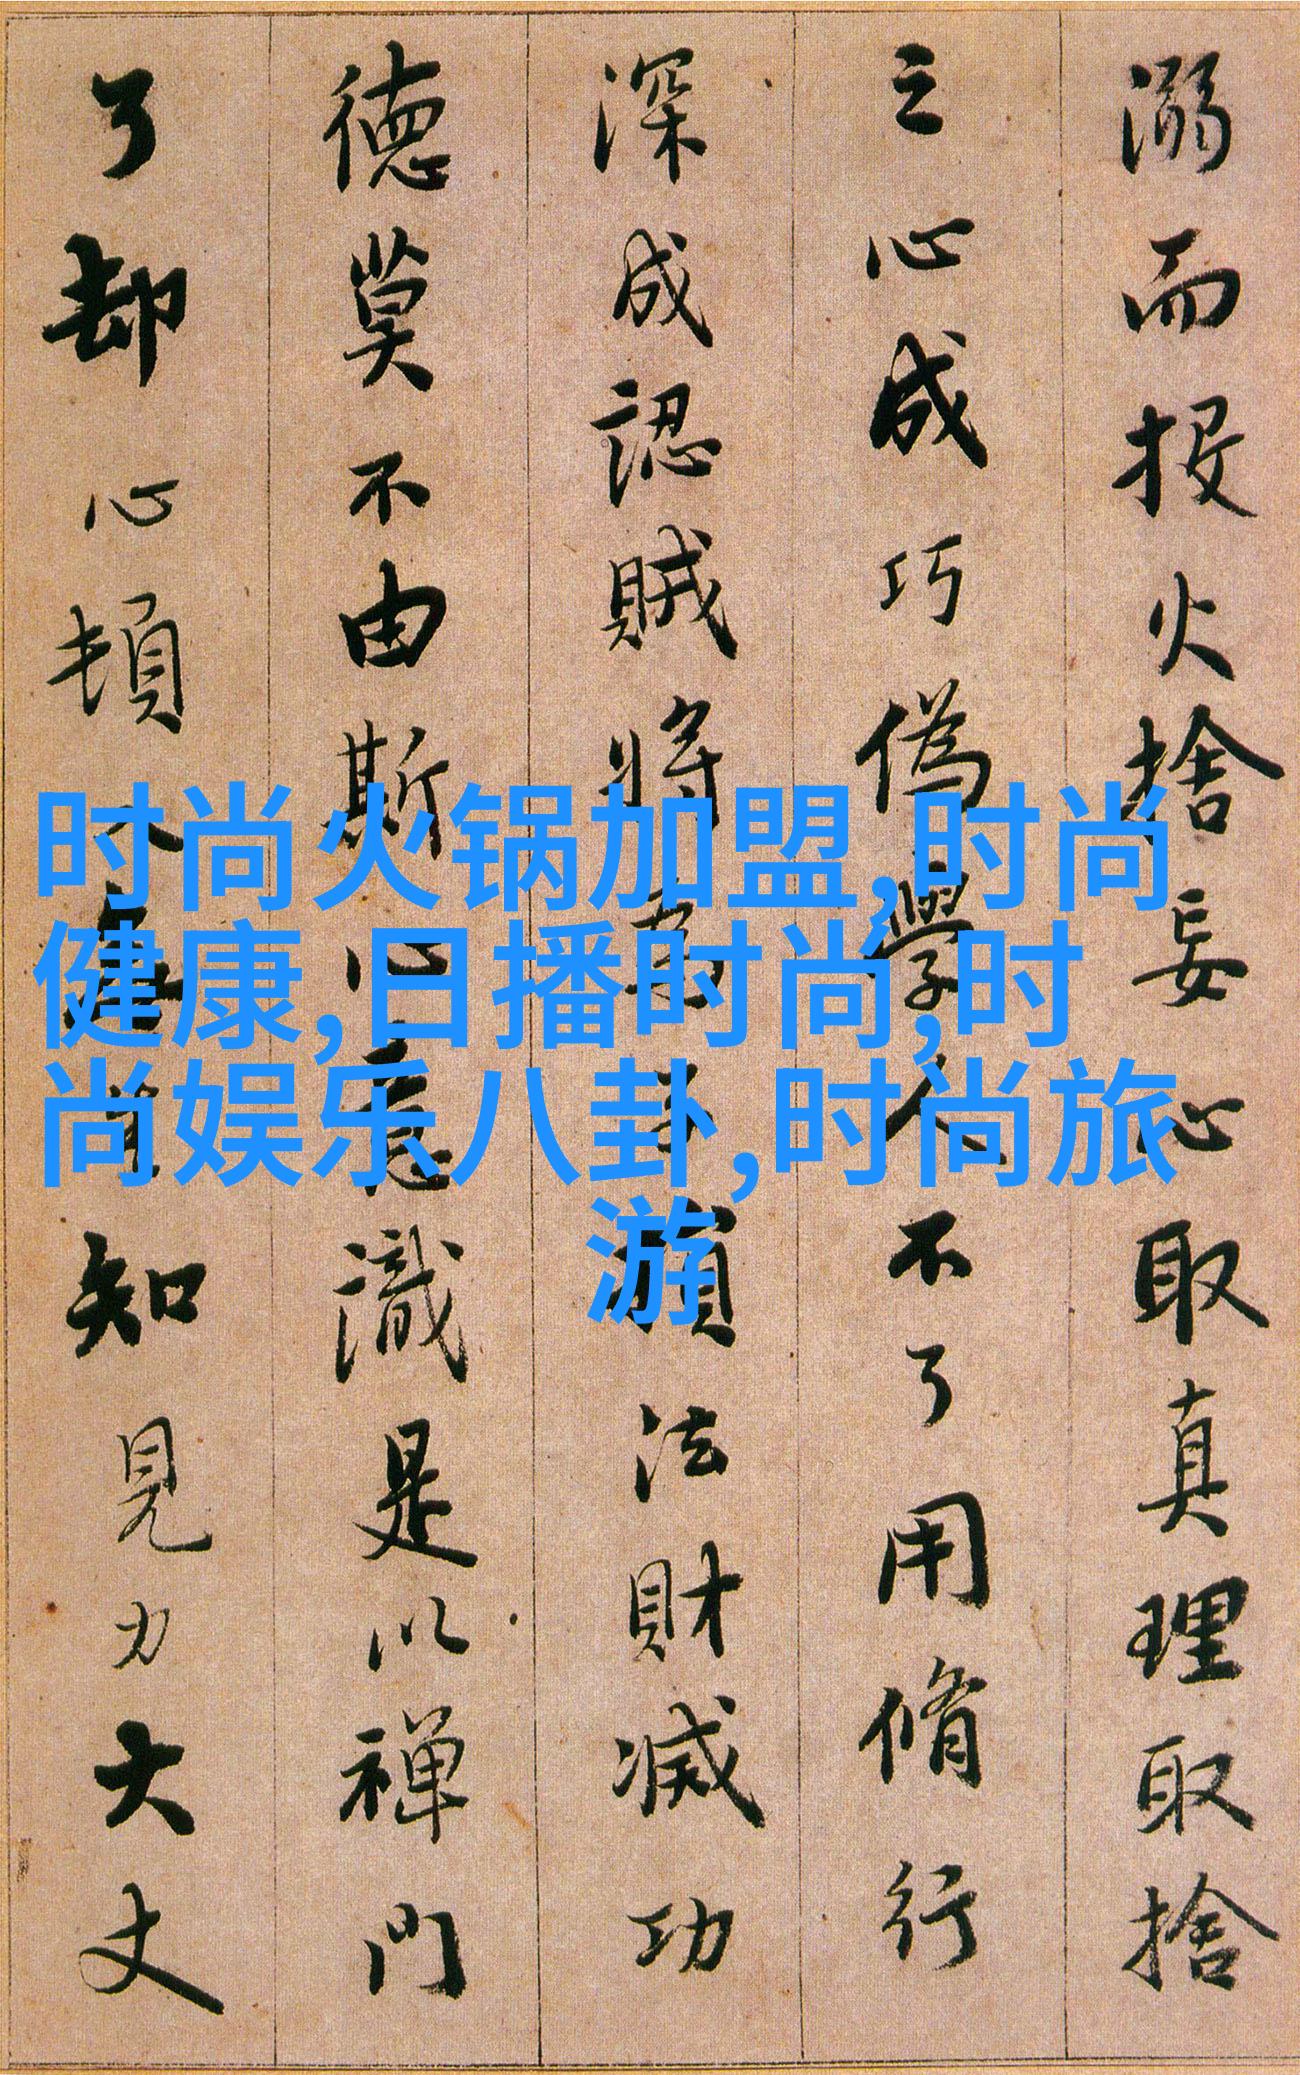 时尚火锅加盟,时尚
健康,日播时尚,时
尚娱乐八卦,时尚旅
游
溺而投火捨妄心取真理取捨
之心成巧偽學人不了用脩行
深成認賊將為子損法財滅功
德莫不由斯心意識是以禪門
了却心頓入無生知見力大丈